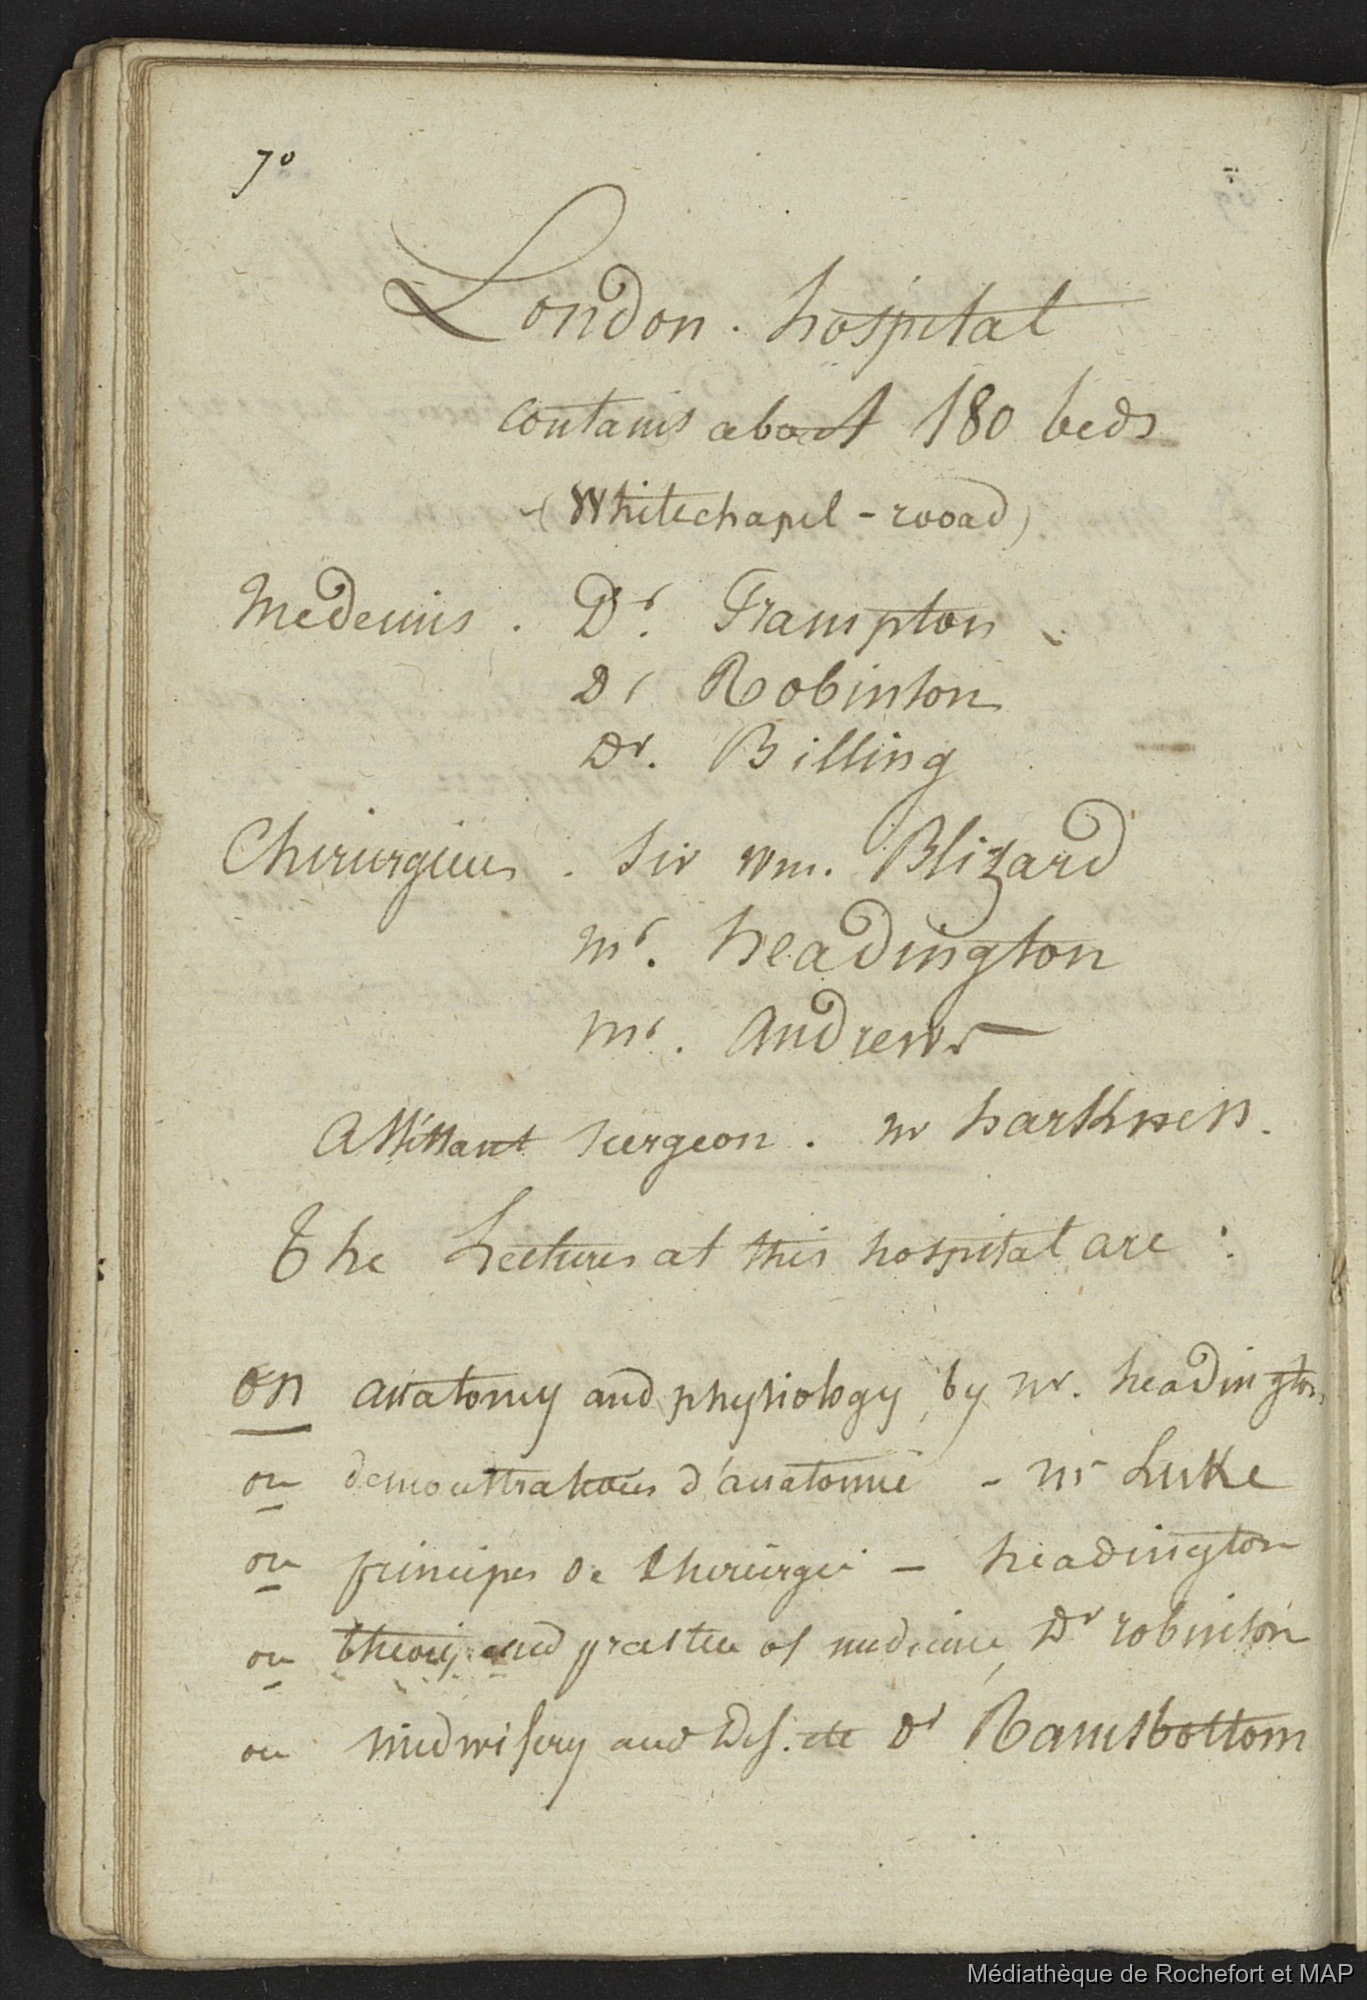 70
London. hospital
contains about 180 beds
(Whitechapel - rooad)
Medecins. Dr. Frampton
Dr Robinson
Dr. Billing
Chirurgiens. Sir Wm. Blizard
Mr. headington
Mr. Andrews
Assistant surgeon. Mr harkness.
The Lectures at this hospital are :
on anatomy and physiology, by Mr. headington
on demonstrations d'anatomie - Mr Luke
on principes de Chirurgie - headington
on theory and practice of medicine, Dr robinson
on midwifery and Des. etc Dr Ramsbottom
Médiathèque de Rochefort et MAP